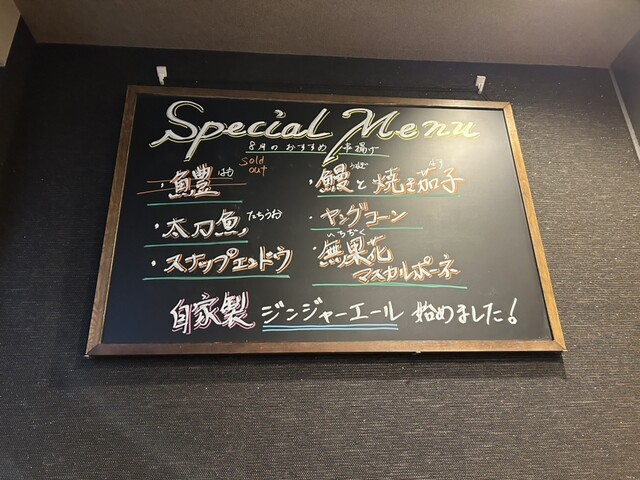 Special Menu
8月のおすすめ 串揚げ
Sold out
・鱧 はも
・太刀魚 たちうお
・スナップエンドウ
・鰻と焼き茄子 うなぎ なす
・ヤングコーン
いちぢく
・無果花
マスカルポーネ
自家製 ジンジャーエール 始めました!